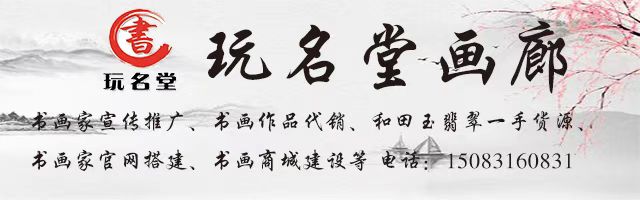 書
玩名堂
玩名堂画廊
书画家宣传推广、书画作品代销、和田玉翡翠一手货源、
书画家官网搭建、书画商城建设等 电话：15083160831